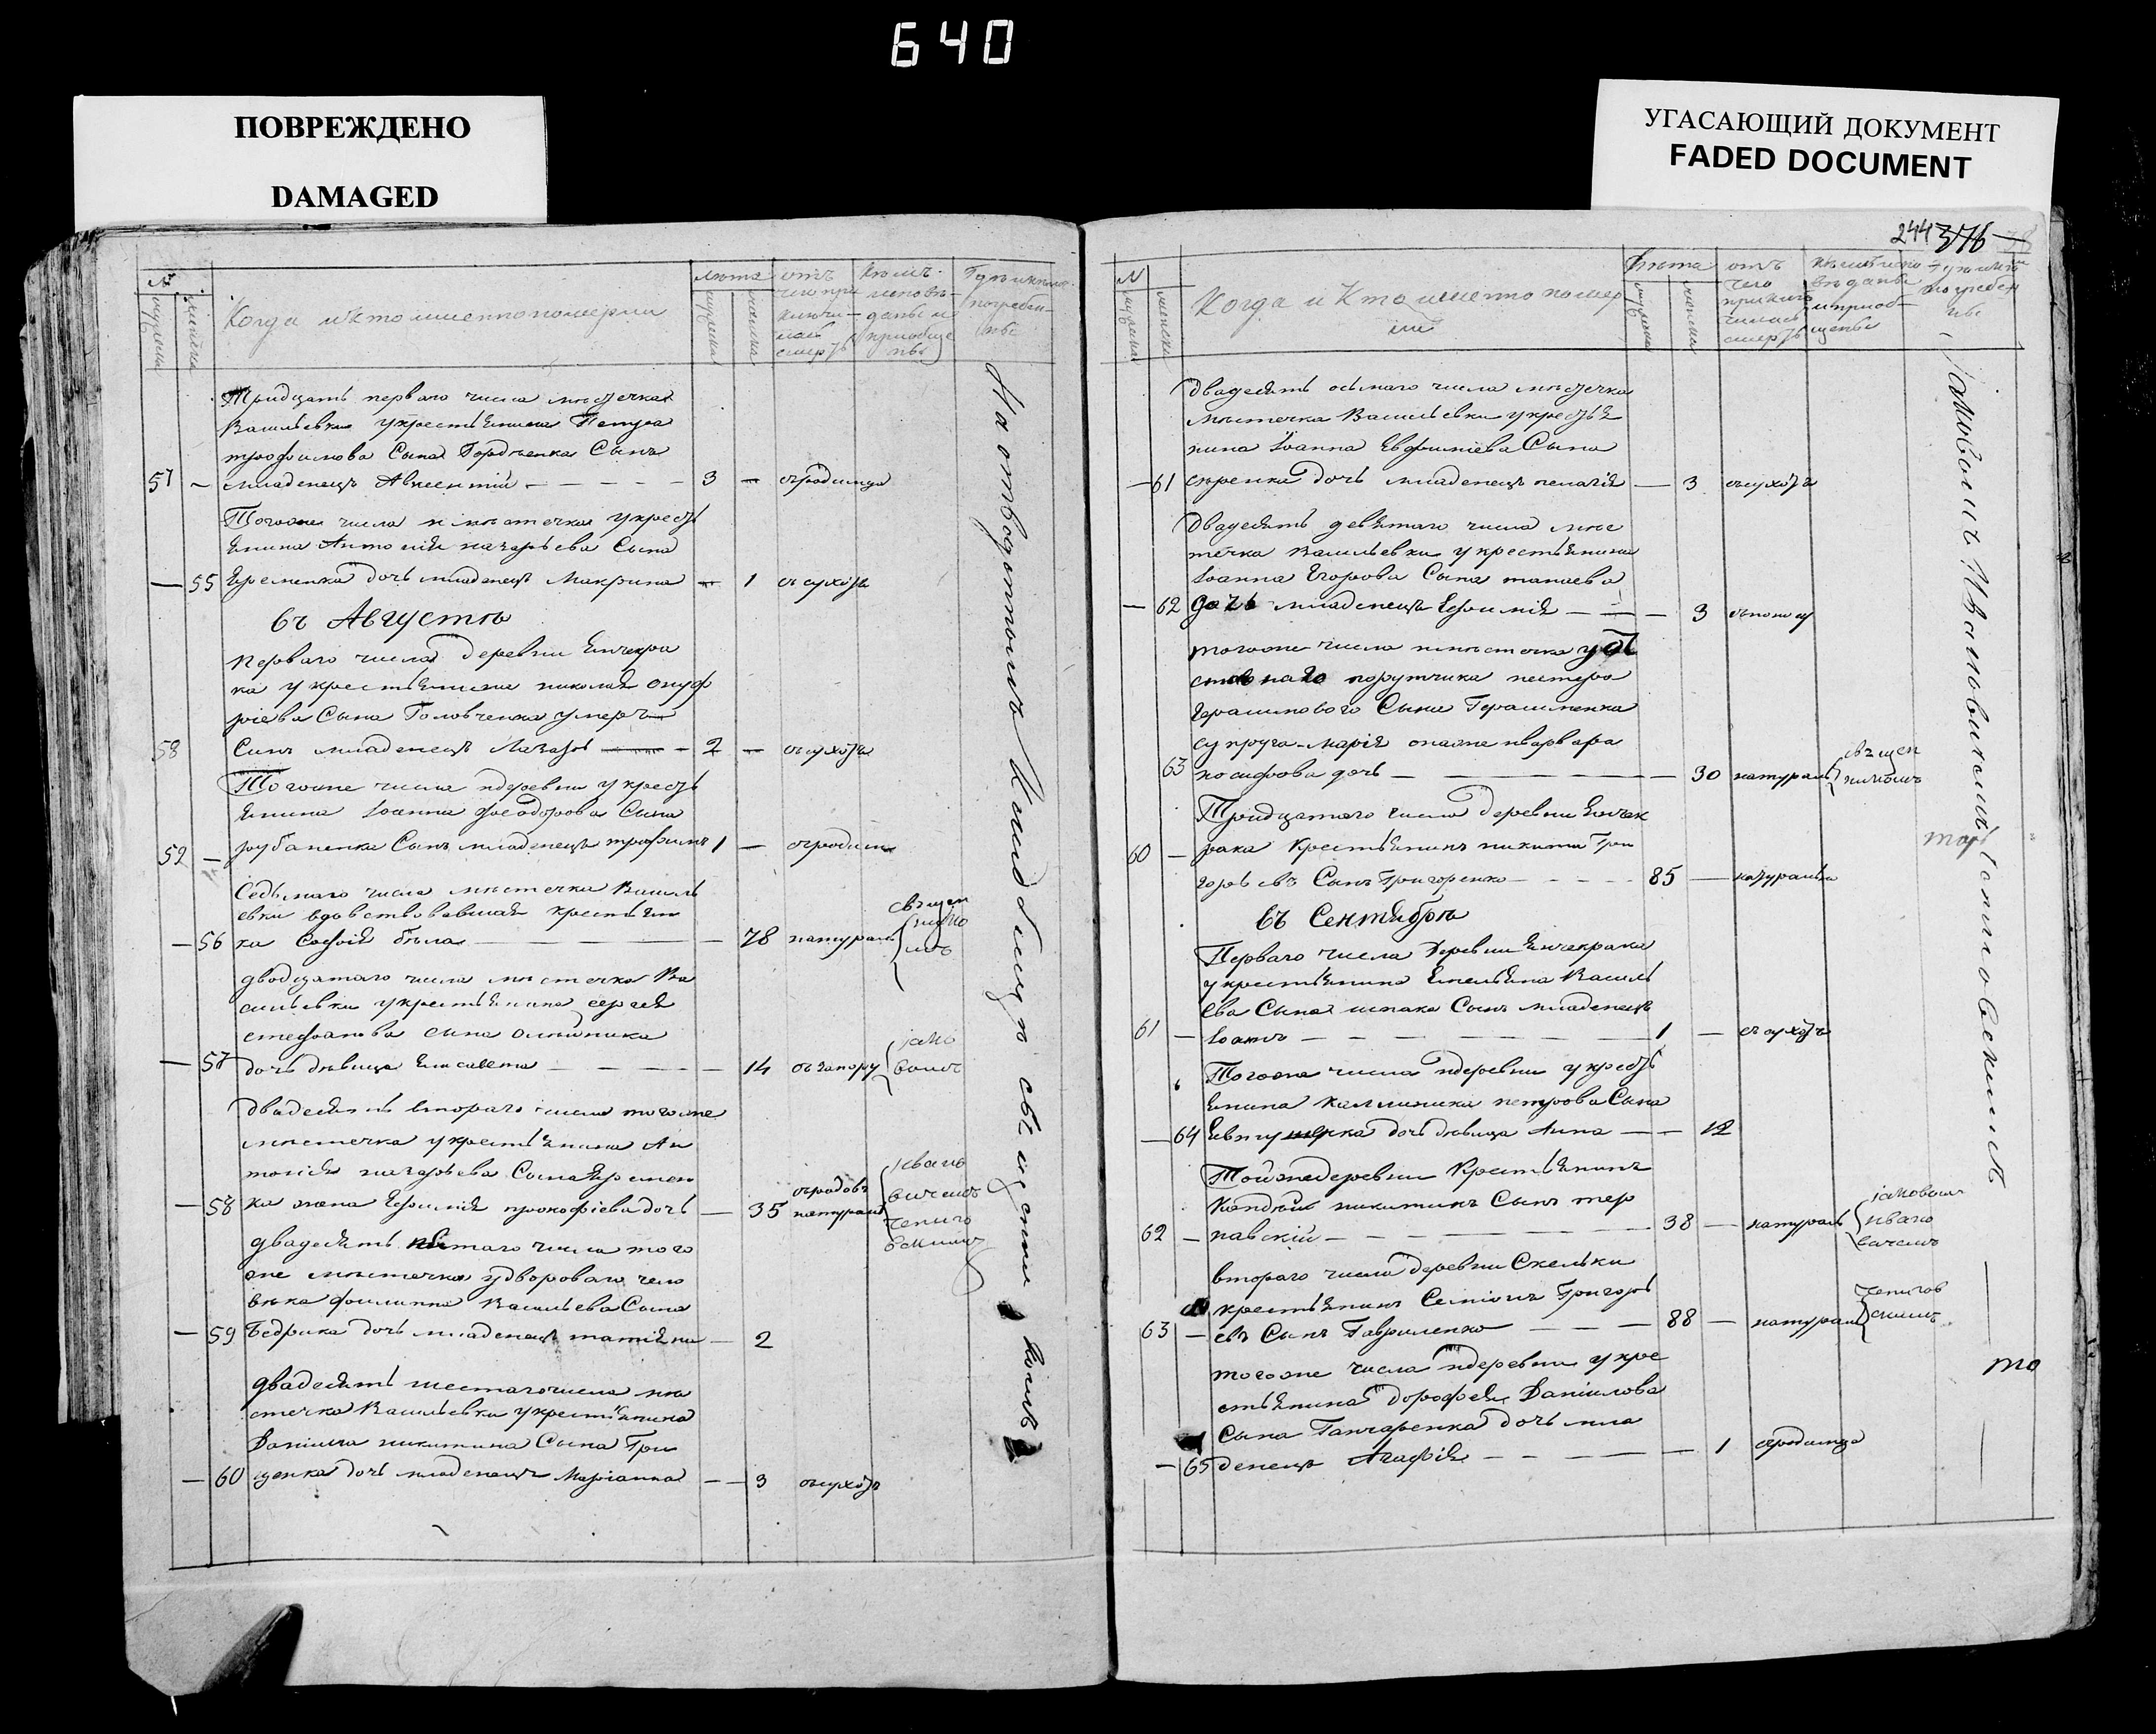 640
ПОВРЕЖДЕНО
DAMAGED
УГАСАЮЩИЙ ДОКУМЕНТ
FADED DOCUMENT
244 376
№
мужеска
женска
Когда и кто именно померли
лета
мужеска
женска
отъ
чего при
ключи
лась
смерть
Кемъ
исповѣ
даны и
приобще
ны
Гдѣ и кемъ
погребе
ны
Тридцать перваго числа мѣстечка
Васильевки у крестьянина Петра
трофимова Сына Гордіенка Сынъ
57 — младенецъ Авксентій — 3 — отродимца
Тогоже числа и мѣстечка у кресть
янина Антонія назарьева Сына
— 55 Яременка дочь младенецъ Макрина — 1 отсухотъ
въ Августѣ
перваго числа деревни Янчекра
ка у крестьянина николая онуф
ріева Сына Головченка умеръ
58 Сынъ младенецъ Лазарь — 2 — отсухотъ
Тогоже числа идеревни у кресть
янина Іоанна феодорова Сына
59 — рубаненка Сынъ младенецъ трофимъ 1 — отродим
Седьмаго числа мѣстечка Василь
евки вдовствовавшая крестьян
— 56 ка Софія бѣлая — 78 натураль священ
нико
мъ
двадцатаго числа мѣстечка Ва
сильевки у крестьянина сергея
стефанова сына олийника
— 57 дочь дѣвица Елисавета — 14 отзапору яко
вомъ
двадесять втораго числа тогоже
мѣстечка у крестьянина Ан
тонія назарьева Сына Яремен
— 58 ка жена Ефимія прокофіева дочь — 35 отродовъ натураль Ивано
вичемъ
чепиго
вскимъ
двадесять пятаго числа того
же мѣстечка удвороваго чело
вѣка филиппа Васильева Сына
— 59 Бедрика дочь младенецъ татіяна — 2
двадесять шестагочисла мѣ
стечка Васильевки у крестьянина
Даніила никитина Сына Гри
— 60 ценка дочь младенецъ Маріанна — 3 отсухотъ
На отведенномъ Кладбищѣ священникомъ
№
мужеска
женска
Когда и Кто именно помер
ли
Лета
мужеска
женска
отъ
чего
приклю
чилась
смерть
кемъ испо
вѣданы
и приоб
щены
погребен
ны
двадесять осьмаго числа мѣстечка
мѣстечка Васильевки у крестья
нина Іоанна Евфиміева Сына
— 61 сѣренка дочь младенецъ пелагія — 3 отсухотъ
двадесять девятаго числа мѣс
течка Васильевки у крестьянина
Іоанна Егорова Сына танаева
— 62 дочь младенецъ Ефимія — 3
тогоже числа имѣстечка у от
ставнаго порутчика нестера
Герасимового Сына Герасименка
супруга марія онаже иварвара
63 иосифова дочь — 30 натураль священ
никомъ
Тридцатаго числа деревни Янчек
60 — рака Крестьянинъ никита Гри
горьевъ Сынъ Григоренко — 85 — натурально
въ Сентябрѣ
Перваго числа Деревни Янчекрака
у крестьянина Емельяна Василь
ева Сына шпака Сынъ младенецъ
61 — Іоаннъ — 1 — отсухотъ
Тогоже числа идеревни у кресть
янина Каллиника петрова Сына
— 64 дочь дѣвица Анна — 12
Тойжедеревни Крестьянинъ
Кондрат никитинъ Сынъ тер
62 — навскій — 38 — натураль яковомъ
ивано
вичемъ
втораго числа деревни Скельки
крестьянинъ Семіонъ Григорь
63 — евъ Сынъ Гавриленко — 88 — натураль чепигов
скимъ
тогоже числа идеревни у кре
стьянина дорофея Даніилова
Сына Ганчаренка дочь мла
— 65 денецъ Агафія — 1 отродимца
Яковомъ Ивановичемъ Чепиговскимъ
то